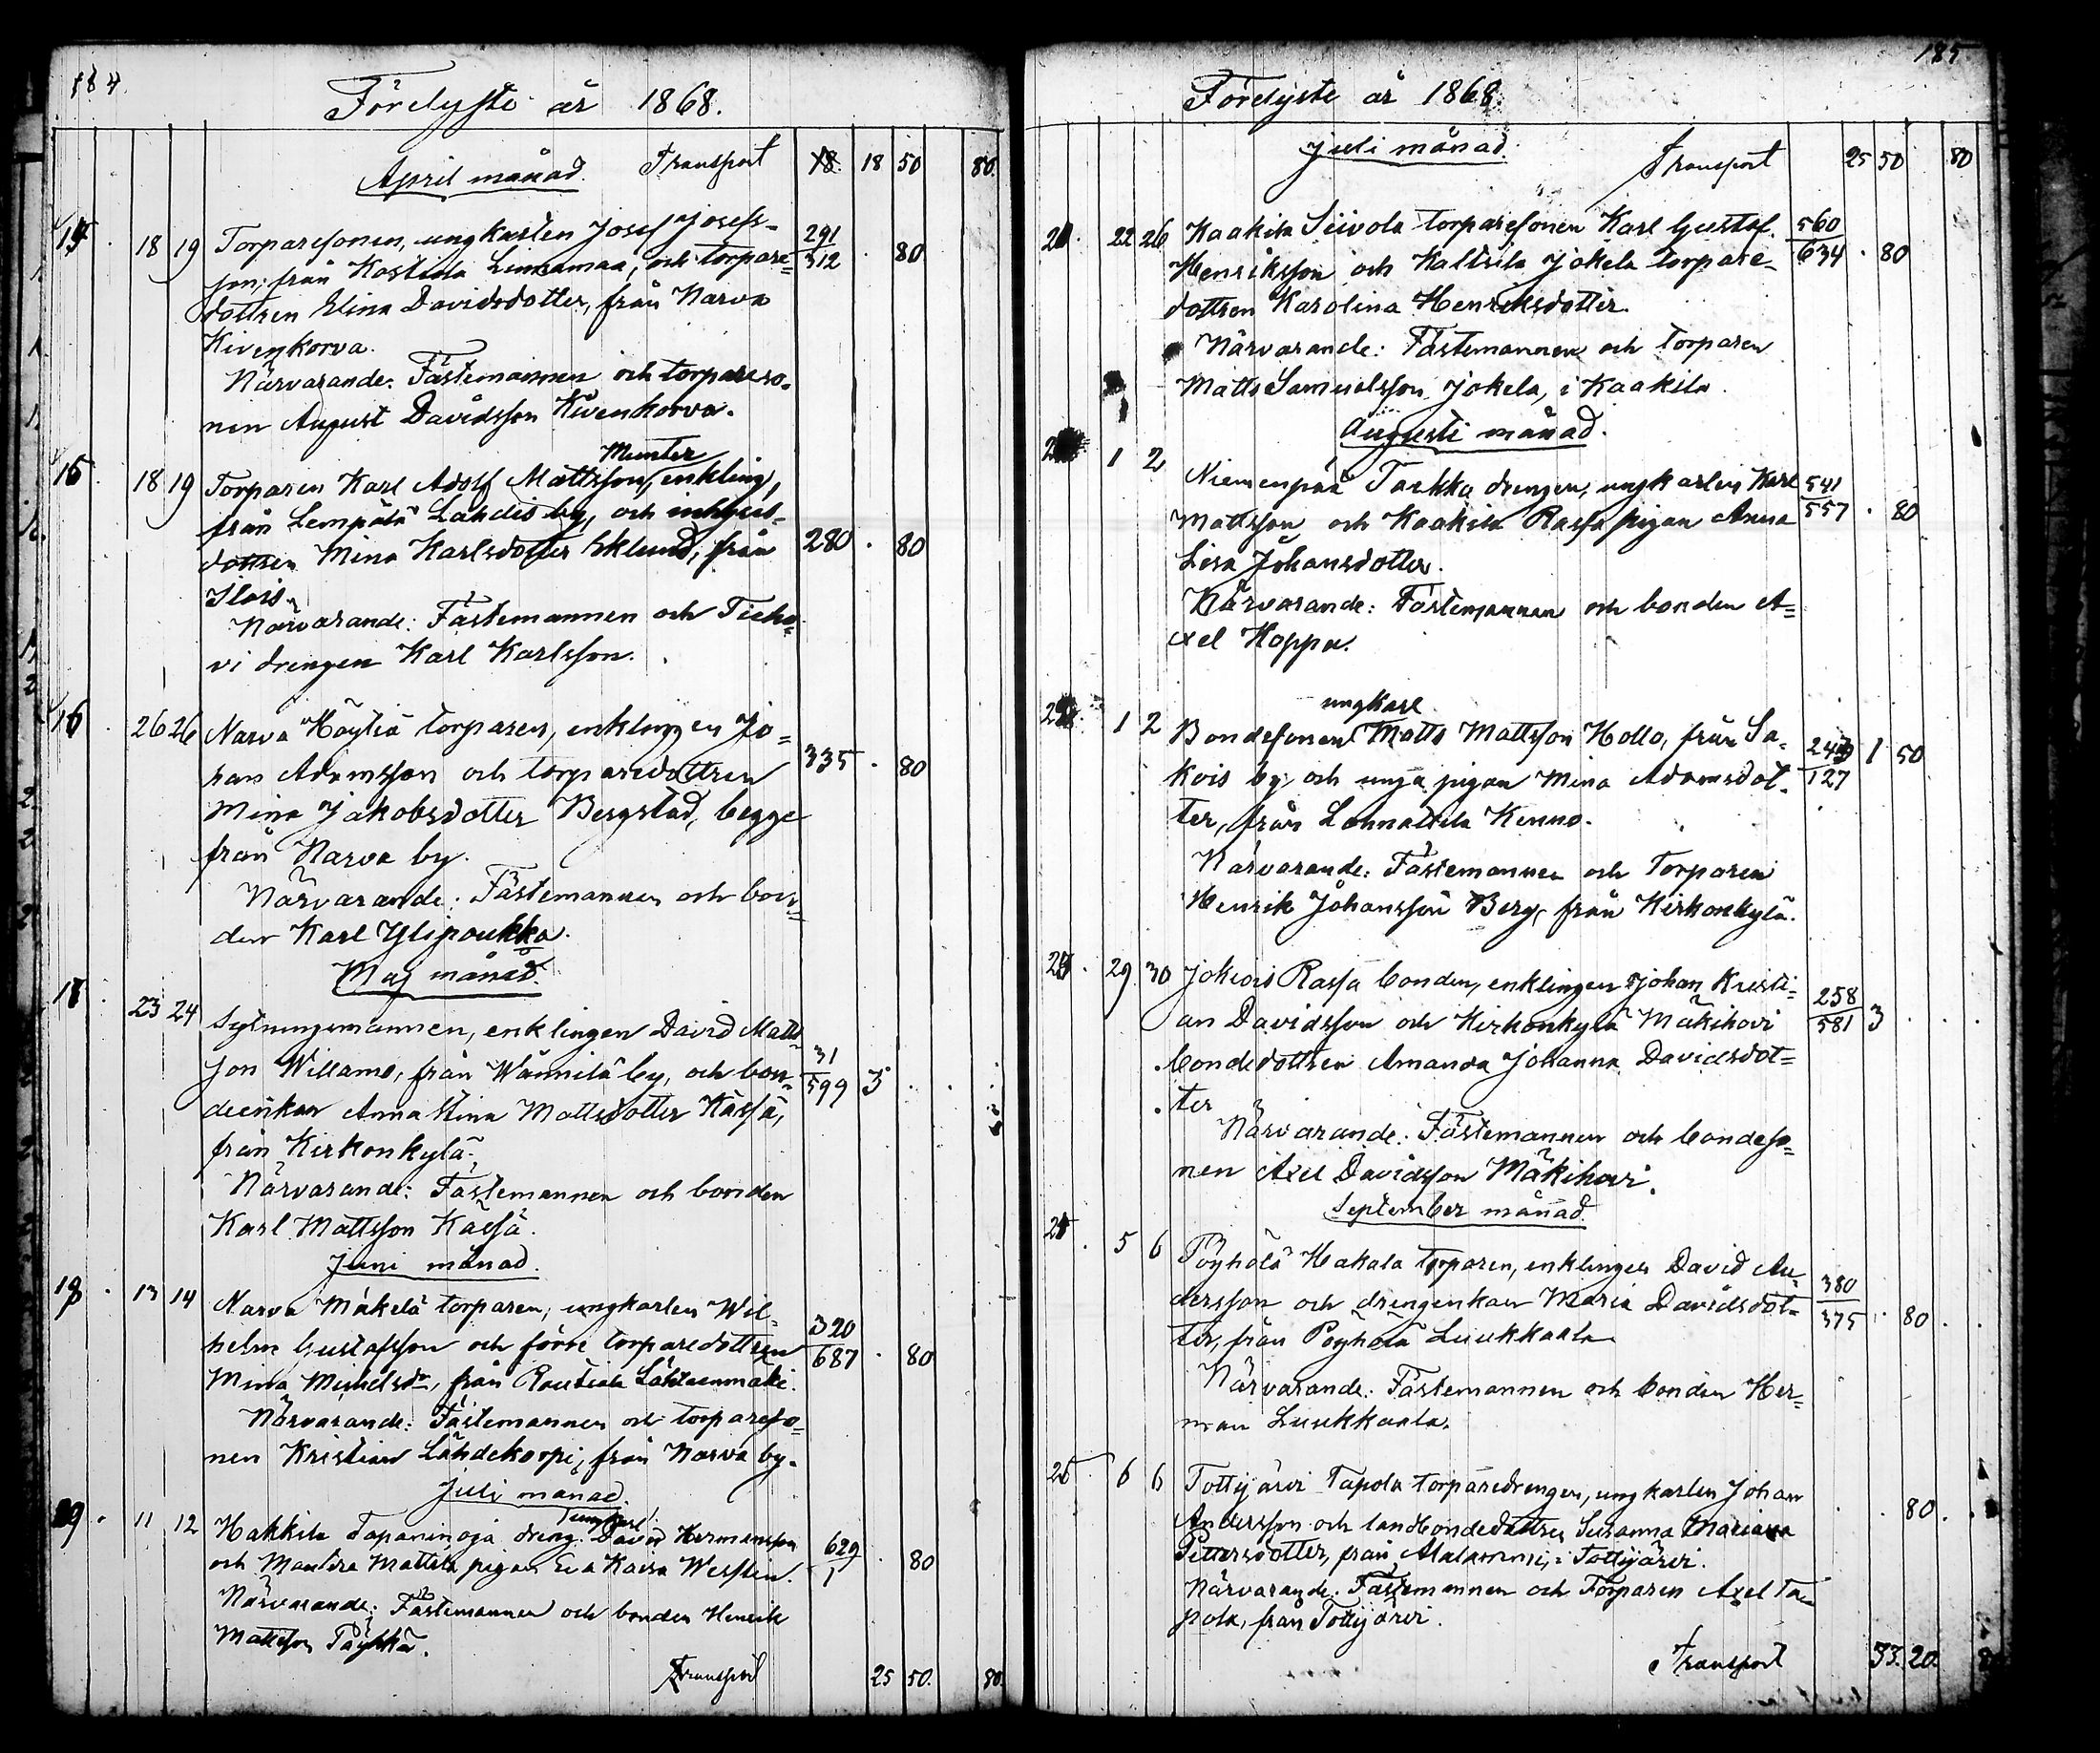 184
Förelyste år 1868.
April månad. Transport 18. 18 50 80.
14. 18 19 Torparesonen, ungkarlen Josef Josefs- 291
son, från Kostiala Linnamaa, och torpare- 312 . 80
dottren Elina Davidsdotter, från Narva
Kivenkorva.
Närvarande: Fästemannen och torpareso-
nen August Davidsson Kivenkorva.
Munter
15. 18 19 Torparen Karl Adolf Mattsson, enkling,
från Lempälä Lahdis by, och inhyses-
dottren Mina Karlsdotter Eklund, från 280 . 80
Ilois.
Närvarande: Fästemannen och
drengen Karl Karlsson.
16. 26 26 Narva Höytiä torparen, enklingen Jo-
han Adamsson och torparedottren 335 . 80
Mina Jakobsdotter Bergstad, begge
från Narva by.
Närvarande: Fästemannen och bon-
den Karl Ylipoukka.
Maj månad.
17. 23 24 Sytningsmannen, enklingen David Matts-
son Willamo, från Wännilä by, och bon- 31
deenkan Anna Stina Mattsdotter Kässä, 599 3
från Kirkonkylä.
Närvarande: Fästemannen och bonden
Karl Mattsson Kässä.
Juni månad.
18. 13 14 Narva Mäkelä torparen, ungkarlen Wil- 320
helm Gustafsson och förre torparedottren 687 . 80
Mina Michelsdr, från Rautiala Lähteenmäki.
Närvarande: Fästemannen och torpareso-
nen Kristian Lähdekorpi, från Narva by.
Juli månad.
ungkarl
19. 11 12 Hakkila Tapaninoja dreng. David Hermansson 629
och Mantere Mattila pigan Eva Kaisa Wesslin. 1 . 80
Närvarande: Fästemannen och bonden Henrik
Mattsson Täyhkä.
Transport 25 50. 80.
185
Förelyste år 1868.
Juli månad.
Transport 25 50 80
20. 22 26 Kaakila Seivola torparesonen Karl Gustaf 560
Henriksson och Kaltsila Jokela torpare- 634 . 80
dottren Karolina Henriksdotter.
Närvarande: Fästemannen och torparen
Matts Samuelsson Jokela, i Kaakila.
Augusti månad.
1 2 Niemenpää Tarkka drengen, ungkarlen Karl 541
Mattsson och Kaakila Rassa pigan Anna 557 . 80
Lisa Johansdotter.
Närvarande: Fästemannen och bonden A-
xel Hoppu.
ungkarl
1 2 Bondesonen Matts Mattsson Hollo, från Sa- 243 1 50
kois by, och unga pigan Mina Adamsdot- 127
ter, från Lohnattila Kenno.
Närvarande: Fästemannen och Torparen
Henrik Johansson Berg, från Kirkonkylä.
23. 29 30 Jokiois Rassa bonden, enklingen Johan Kristi- 258
an Davidsson och Kirkonkylä Mäkihovi 581 3
bondedottren Amanda Johanna Davidsdot-
ter
Närvarande: Fästemannen och bondeso-
nen Axel Davidsson Mäkihovi.
September månad.
24. 5 6 Pöyhölä Hakala torparen, enklingen David An- 380
dersson och drengenkan Maria Davidsdot- 375 . 80
ter, från Pöyhölä Luukkaala.
Närvarande: Fästemannen och bonden Her-
man Luukkaala.
25. 6 6 Tottijärvi Tapola torparedrengen, ungkarlen Johan
Andersson och landbondedottren Susanna Mariana . 80
Pettersdotter, från Alalammi, i Tottijärvi.
Närvarande: Fästemannen och Torparen Axel Ta-
pola, från Tottijärvi.
Transport 33. 20.